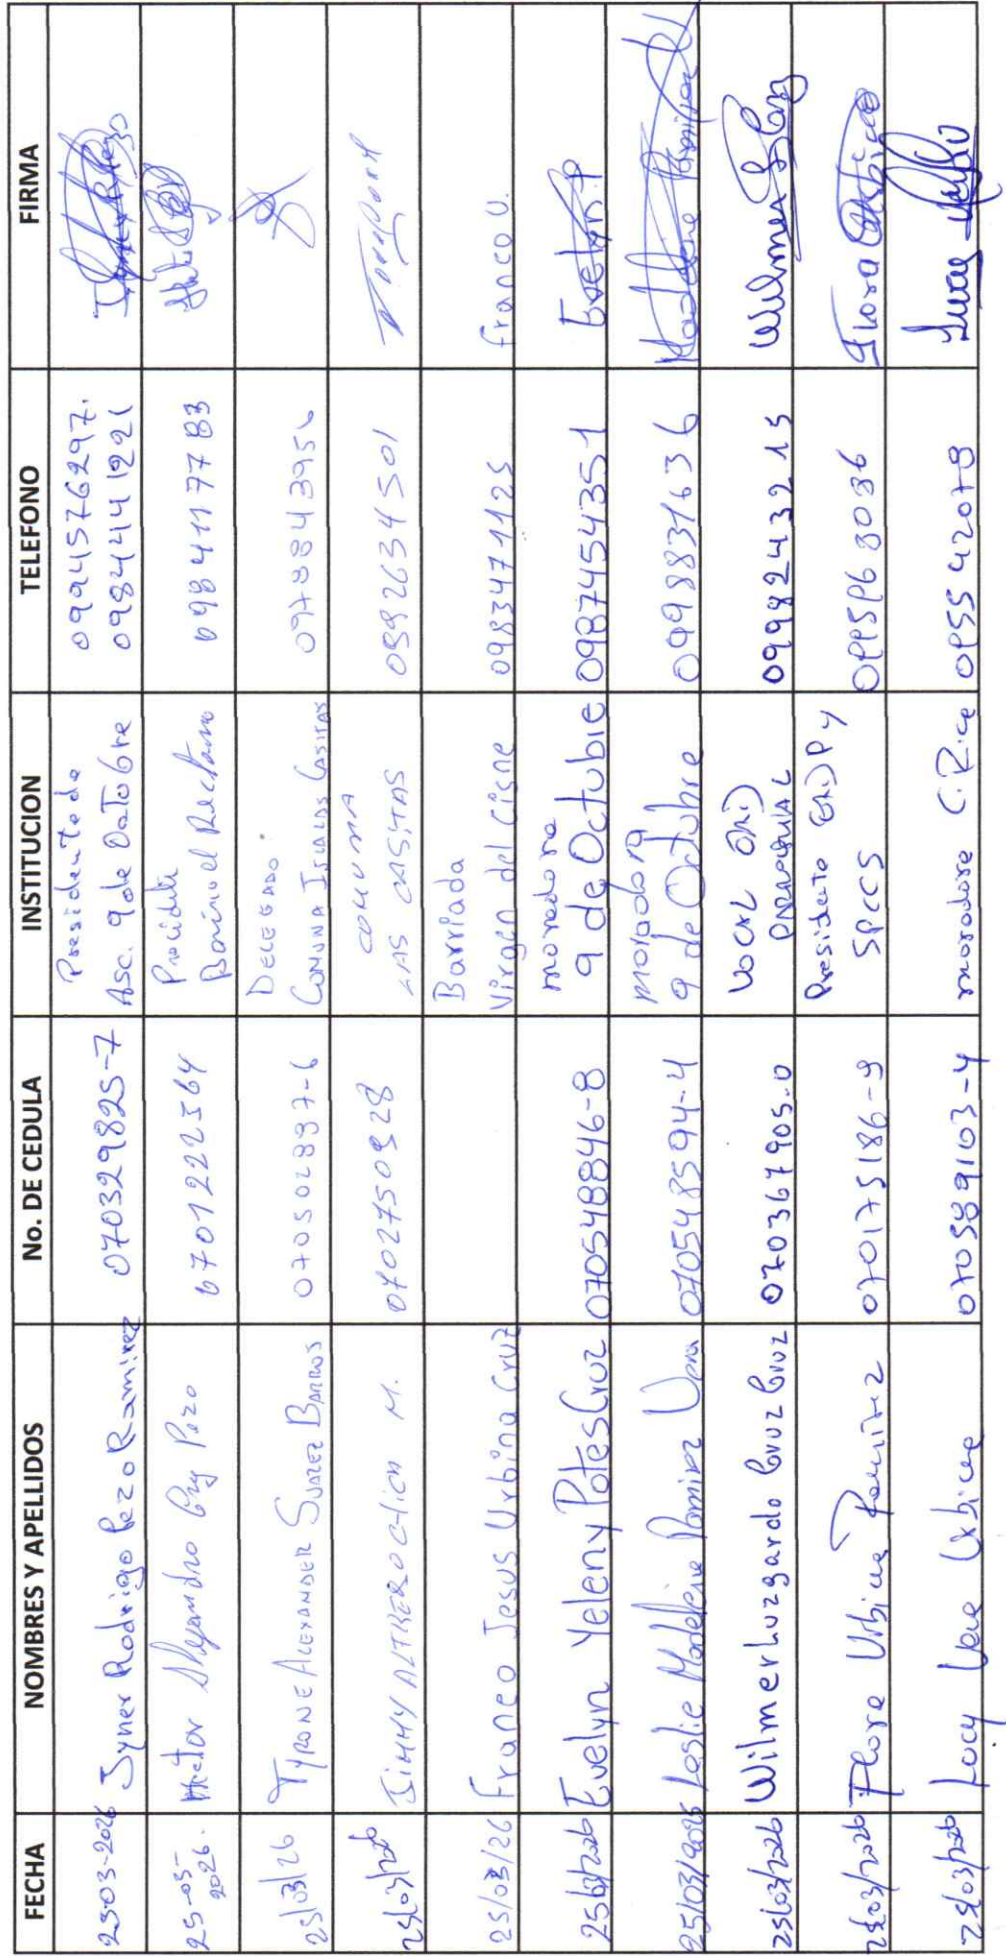 FECHA NOMBRES Y APELLIDOS No. DE CEDULA INSTITUCION TELEFONO FIRMA
25-03-2026 Jyner Rodrigo Pezo Ramirez 070329825-7 Presidente de Asc. 9 de Octobre 0994576297. 0984441221
25-03-2026. Hector Alejandro Cruz Pezo 0701222564 0984117783
25/03/26 Tyrone Alexander Suarez Barros 070502897-6 Delegado Comuna Isla Las Casitas 0978843956
25/03/2026 Jimmy M. 0702750928 comuna Las Casitas 0982634501
25/03/26 Franco Jesus Urbina Cruz Barriada Virgen del Cisne 0983471125 Franco U.
25/03/2026 Evelyn Yeleny Potes Cruz 070548846-8 moradora 9 de Octubre 0987454351 Evelyn.P
25/03/2026 Leslie Madeleine Ramirez Vera 070548594-4 moradora 9 de Octubre 0998831636
25/03/2026 Wilmer Luzgardo Cruz Cruz 070367905-0 Vocal GAD Parroquial 0998243215 Wilmer Cruz
25/03/2026 Flora Urbina Ramirez 070175186-9 Presidente 0995968036 Flora Urbina
25/03/2026 Lucy Vera Urbina 070589103-4 moradora C. Rica 095542078 Lucy